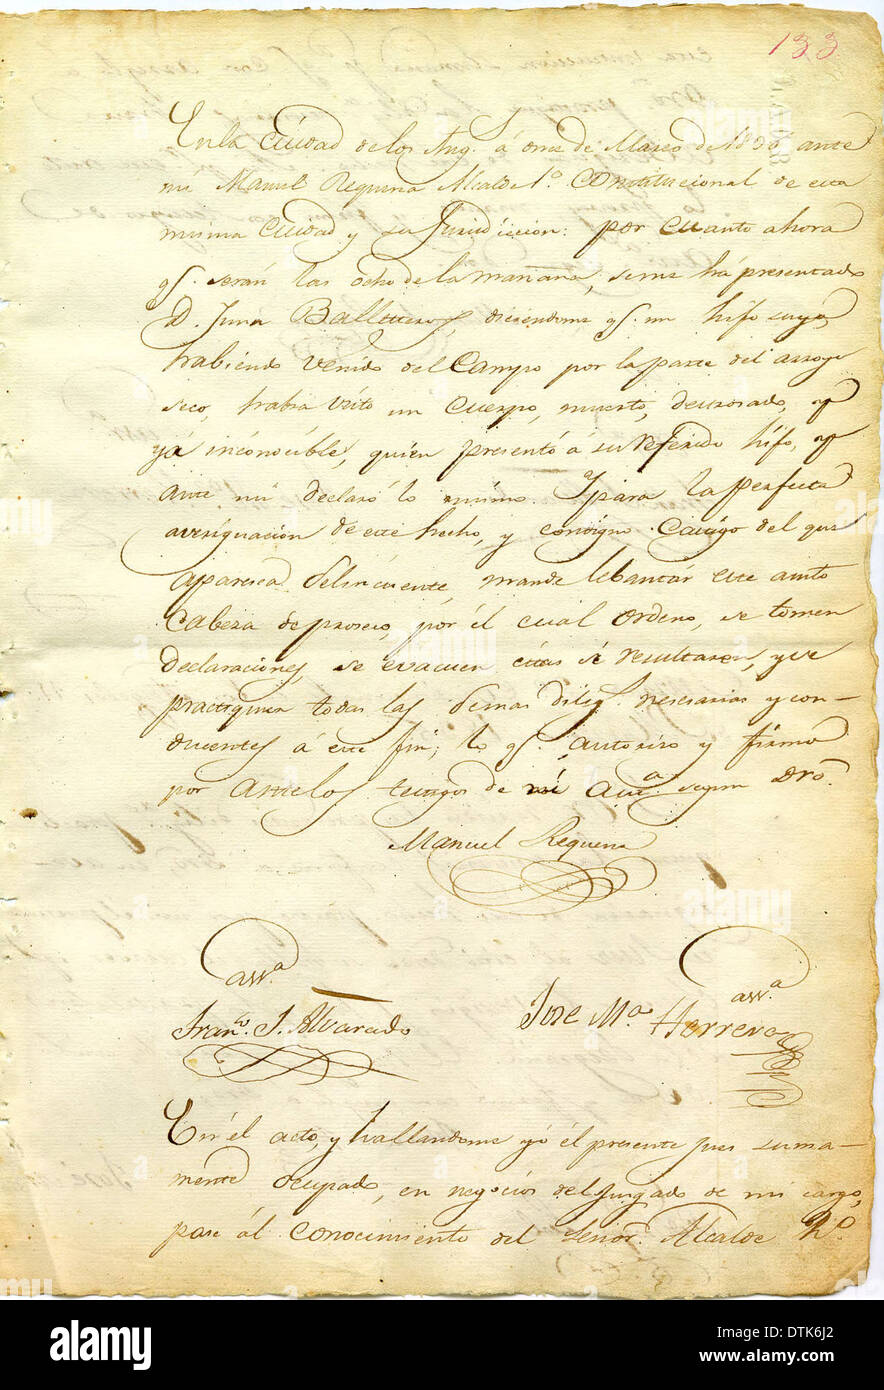 133
En la Ciudad de los Ang.s á once de Marzo de 1836, ante
mi Manuel Requena Alcalde 1.o Constitucional de esta
misma Ciudad y su Jurisdiccion: por cuanto ahora
q.e seran las ocho de la mañana, se me há presentado
D. Juan Ballesteros, diciendome q.e un hijo suyo,
habiendo venido del Campo por la parte del arroyo
seco, habia visto un cuerpo, muerto, devorado, y
yá inconocible, quien presentó á su referido hijo, y
ante mi declaró lo mismo. Y para la perfecta
aversiguacion de este hecho, y consigno Castigo del que
aparesca delincuente, mande lebantár este auto
Cabeza de proseso, por él cual ordeno, se tomen
declaraciones, se evacuen citas si resultaren, y se
practiquen todas las demas dilig.s nesesarias y con-
ducentes á este fin; lo q.e autoriso y firmo
por ante los testigos de mi asis.a segun dro.
Manuel Requena
ass.a
ass.a
Fran.co J. Alvarado
Jose M.a Herrera
En él acto, y hallandome yó él presente jues suma-
mente ocupado, en negocios del Jusgado de mi cargo,
pase ál conocimiento del Señor Alcalde 2.o
alamy
alamy
alamy
alamy
alamy
Image ID: DTK6J2
www.alamy.com